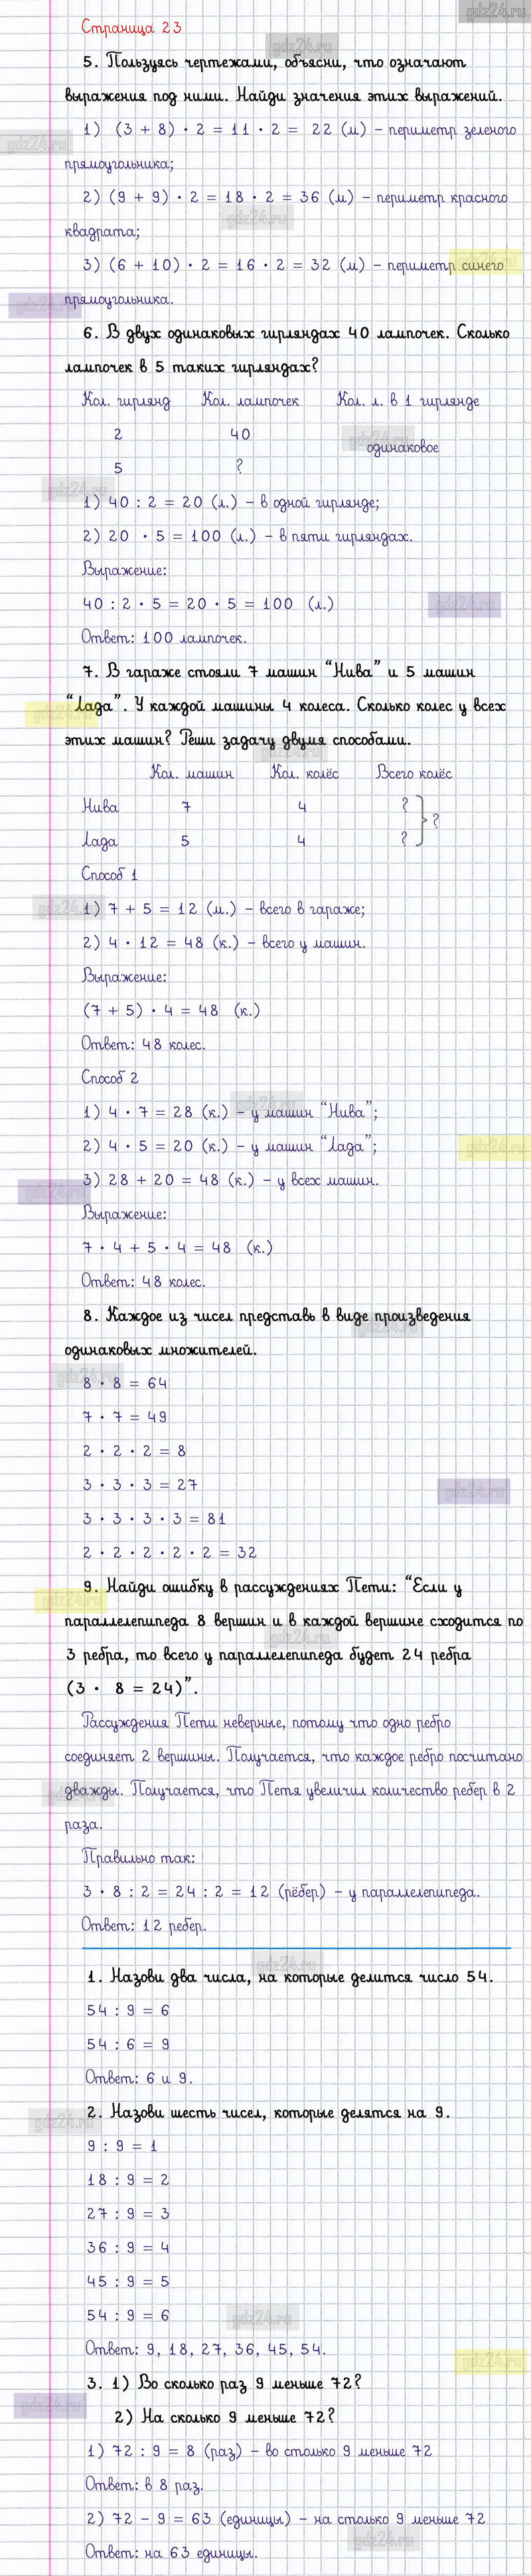 gdz24.ru
Страница 23
gdz24.ru
5. Пользуясь чертежами, объясни, что означают
выражения под ними. Найди значения этих выражений.
1) (3 + 8) · 2 = 11 · 2 = 22 (м) – периметр зеленого
gdz24.ru
прямоугольника;
2) (9 + 9) · 2 = 18 · 2 = 36 (м) – периметр красного
gdz24.ru
квадрата;
3) (6 + 10) · 2 = 16 · 2 = 32 (м) – периметр синего
gdz24.ru
прямоугольника.
gdz24.ru
6. В двух одинаковых гирляндах 40 лампочек. Сколько
лампочек в 5 таких гирляндах?
Кол. гирлянд Кол. лампочек Кол. л. в 1 гирлянде
2 40
gdz24.ru
одинаковое
5 ?
gdz24.ru
1) 40 : 2 = 20 (л.) – в одной гирлянде;
2) 20 · 5 = 100 (л.) – в пяти гирляндах.
Выражение:
40 : 2 · 5 = 20 · 5 = 100 (л.)
gdz24.ru
Ответ: 100 лампочек.
7. В гараже стояли 7 машин “Нива” и 5 машин
“Лада”. У каждой машины 4 колеса. Сколько колес у всех
gdz24.ru
этих машин? Реши задачу двумя способами.
gdz24.ru
Кол. машин Кол. колёс Всего колёс
Нива 7 4 ?
?
Лада 5 4 ?
Способ 1
1) 7 + 5 = 12 (м.) – всего в гараже;
gdz24.ru
2) 4 · 12 = 48 (к.) – всего у машин.
Выражение:
(7 + 5) · 4 = 48 (к.)
Ответ: 48 колес.
Способ 2
gdz24.ru
1) 4 · 7 = 28 (к.) – у машин “Нива”;
2) 4 · 5 = 20 (к.) – у машин “Лада”;
gdz24.ru
3) 28 + 20 = 48 (к.) – у всех машин.
gdz24.ru
Выражение:
7 · 4 + 5 · 4 = 48 (к.)
Ответ: 48 колес.
8. Каждое из чисел представь в виде произведения
gdz24.ru
одинаковых множителей.
gdz24.ru
8 · 8 = 64
7 · 7 = 49
2 · 2 · 2 = 8
3 · 3 · 3 = 27
gdz24.ru
3 · 3 · 3 · 3 = 81
2 · 2 · 2 · 2 · 2 = 32
9. Найди ошибку в рассуждениях Пети: “Если у
gdz24.ru
параллелепипеда 8 вершин и в каждой вершине сходится по
gdz24.ru
3 ребра, то всего у параллелепипеда будет 24 ребра
(3 · 8 = 24)”.
Рассуждения Пети неверные, потому что одно ребро
соединяет 2 вершины. Получается, что каждое ребро посчитано
дважды. Получается, что Петя увеличил количество ребер в 2
gdz24.ru
раза.
Правильно так:
3 · 8 : 2 = 24 : 2 = 12 (рёбер) – у параллелепипеда.
Ответ: 12 ребер.
gdz24.ru
1. Назови два числа, на которые делится число 54.
54 : 9 = 6
54 : 6 = 9
Ответ: 6 и 9.
2. Назови шесть чисел, которые делятся на 9.
gdz24.ru
9 : 9 = 1
18 : 9 = 2
27 : 9 = 3
36 : 9 = 4
45 : 9 = 5
54 : 9 = 6
gdz24.ru
Ответ: 9, 18, 27, 36, 45, 54.
gdz24.ru
3. 1) Во сколько раз 9 меньше 72?
gdz24.ru
2) На сколько 9 меньше 72?
1) 72 : 9 = 8 (раз) – во столько 9 меньше 72
Ответ: в 8 раз.
2) 72 – 9 = 63 (единицы) – на столько 9 меньше 72
gdz24.ru
Ответ: на 63 единицы.